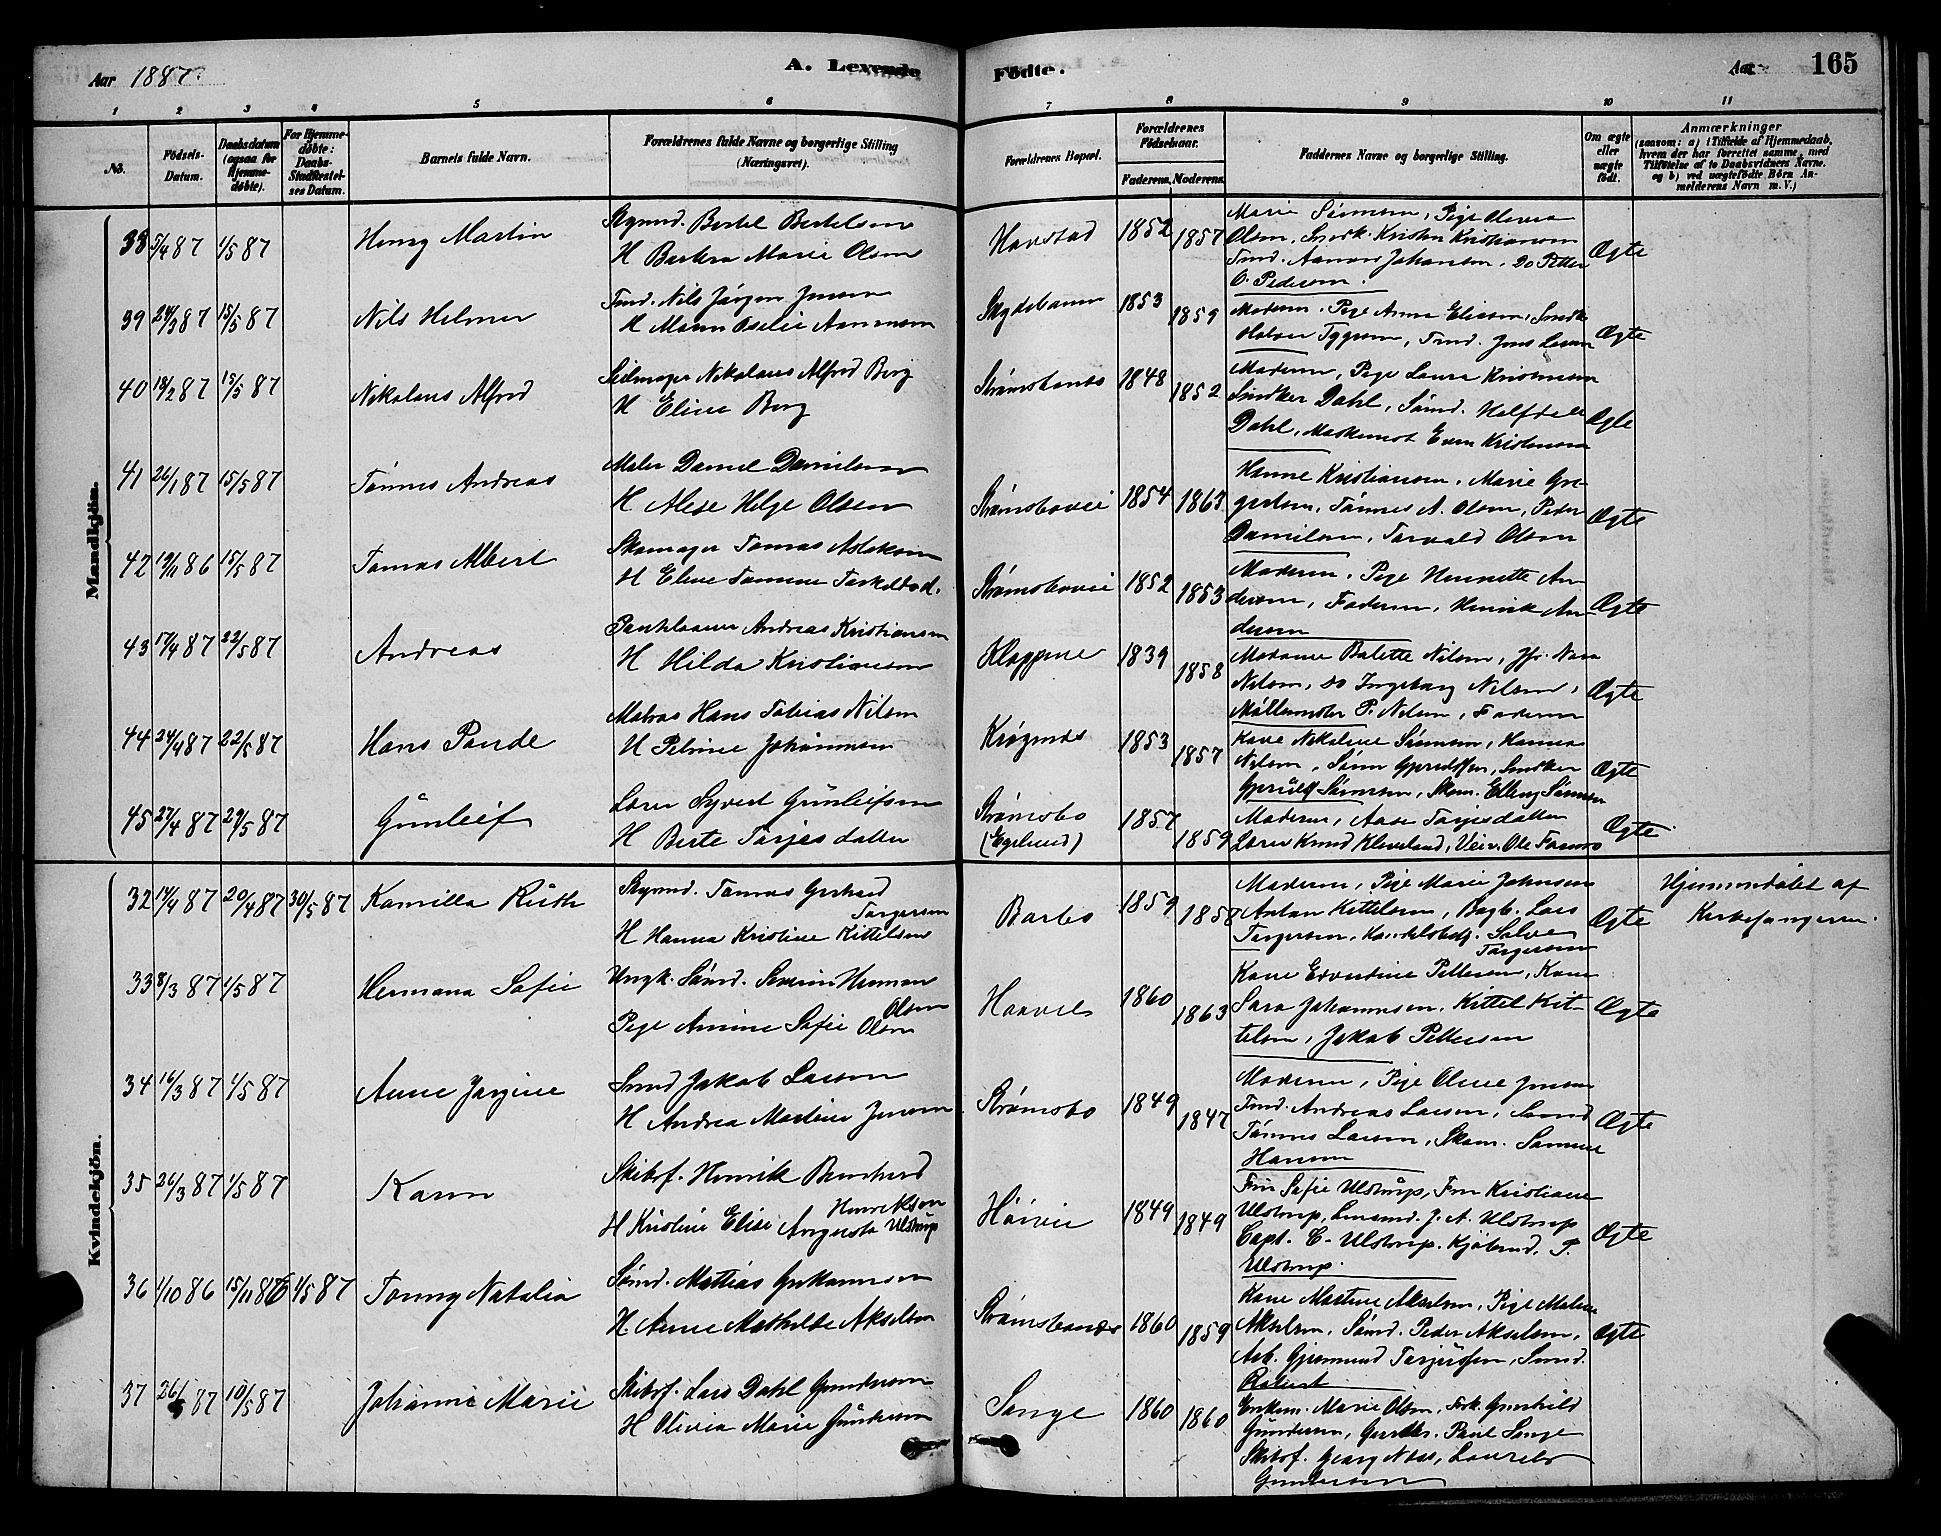 Aar 1887.
A. Levende
Fødte.
Aar
165
1 2 3 4 5 6 7 8 9 10 11
No.
Födsels-
Datum.
Daabsdatum
(ogsaa for
Hjemme-
döbte).
For Hjemme-
döbte:
Daabs-
Stadfæstel-
ses Datum.
Barnets fulde Navn.
Forældrenes fulde Navne og borgerlige Stilling
(Næringsvei).
Forældrenes Bopæl.
Forældrenes
Födselsaar.
Faderens. Moderens.
Faddernes Navne og borgerlige Stilling.
Om ægte
eller
uægte
födt.
Anmærkninger
(saasom: a) i Tilfælde af Hjemmedaab,
hvem der har forrettet samme, med
Tilföielse af to Daabsvidners Navne,
og b) ved uægtefödte Börn An-
melderens Navn m. V.)
Mandkjön.
38 5/4 87 1/5 87 Henry Martin
Bertel Bertelsen
H Barbera Marie Olsen
Havstad 1852 1857
Marie Simonsen, Pige Olivia
Olsen, Snedk. Kristen Kristiansen
Tmd. Johansen, Do Petter
O. Pedersen.
Ægte
39 24/3 87 15/5 87 Nils Helmer
Tmd. Nils Jørgen Jensen
H Maren Oselie Aanonsen
Skydebanen 1853 1859
Moderen, Pige Anna Eliasen, Snedk.
Halvor Tygesen, Tmd. Jens Larsen
Ægte
40 18/2 87 15/5 87 Nikolaus Alfred
Seilmager Nikolaus Alfred Berg
H Eline Berg
Strømsbunes 1848 1852
Moderen, Pige Laura Kristensen
Snedker Dahl, Sömd. Halfdan
Dahl, Maskinist Even Kristensen
Ægte
41 26/1 87 15/5 87 Tönnes Andreas
Maler Daniel Danielsen
H Alese Helge Olsen
Strømsboveie 1854 1863
Hanne Kristiansen, Marie Gre-
gersen, Tönnes A. Olsen, Peder
Danielsen, Torvald Olsen
Ægte
42 19/11 86 15/5 87 Tomas Albert
Skomager Tomas Aslaksen
H Eline Tomine Torkelsd.
Strømsboveie 1852 1853
Moderen, Pige Henriette An-
dersen, Faderen, Henrik An-
dersen
Ægte
43 17/4 87 22/5 87 Andreas
Andreas Kristiansen
H Hilda Kristiansen
Kloppene 1839 1858
Madame Bolette Nilsen, Jfr. Nan
Nilsen, do Ingeborg Nilsen,
Møllemster P. Nilsen, Faderen
Ægte
44 24/4 87 22/5 87 Hans Paude
Matros Hans Tobias Nilsen
H Petrine Johannesen
Krøgenes 1853 1757
Kone Nikoline Simonsen, Hanna
Nilsen, Sören Gjeruldsen, Snedker
Gjeruld Simonsen, Skom. Elling Simonsen
Ægte
45 27/4 87 29/5 87 Gunleif
Lærer Syvert Gunleifsen
H Berte Tarjesdatter
Strømsbo
(Egelund) 1857 1859
Moderen, Aase Tarjesdatter
Lærer Knud Kleveland, Veiv. Ole Fosnes
Ægte
Kvindekjön.
32 14/4 87 20/4 87 30/5 87 Kamilla Ruth
Tomas Gerhard
Torgersen
H Hanna Kristine Kittelsen
Barbo 1859 1858
Moderen, Pige Marie Johnsen
Anton Kittelsen, Bagb. Lars
Torgersen, Handelsbetj. Salve
Torgersen
Ægte
Hjemmedøbt af
Kirkesangeren.
33 8/3 87 1/5 87 Hermana Sofie
Ungk. Sömd. Severin Herman
Olsen
Pige Amine Sofie Olsen
Haavel 1860 1863
Kone Edvardine Pettersen, Kone
Sara Johannesen, Kittel Kit-
telsen, Jakob Pettersen
Ægte
34 16/3 87 1/5 87 Anne Jørgine
Smd Jakob Larsen
H Andrea Martine Jensen
Strømsbo 1849 1847
Moderen, Pige Oline Jensen
Tmd. Andreas Larsen, Smd
Tönnes Larsen, Skom. Samuel
Hansen
Ægte
35 26/3 87 1/5 87 Karen
Skibsf. Henrik Bernhard
Henriksen
H Kristine Elise Augusta Ulstrup
Höivei 1849 1849
Fru Sofie Ulstrup, Fru Kristiane
Ulstrup, J. A. Ulstrup
Capt. C. Ulstrup, Kjöbmd. P.
Ulstrup.
Ægte
36 1/10 86 15/11 86 1/5 87 Tonny Natalia
Sömd. Mattias Gerhansen
H. Anne Mathilde Akselsen
Strømsbunes 1860 1859
Kone Martine Akselsen, Pige Malene
Akselsen, Sömd. Peder Akselsen,
Arb. Gjermund Tarjersen, Smd.
Robert
Ægte
37 26/3 87 10/5 87 Johanne Marie
Skibsf. Lars Dahl Gundersen
H Olivia Marie Gundersen
Songe 1860 1860
Enkem. Marie Olsen, Frk. Gunhild
Gundersen, Paul Songe
Skibsf. Georg Næs, Laurits
Gundersen
Ægte